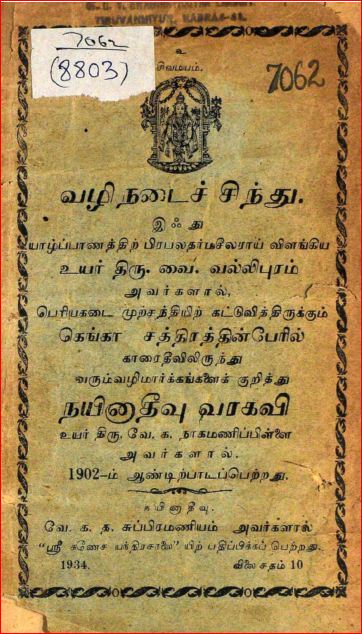 7062
(8803)
TIRUVANMIYUR, MADRAS-41.
7062
உ
சிவமயம்.
வழிநடைச் சிந்து.
இஃது
யாழ்ப்பாணத்திற் பிரபலதர்மசீலராய் விளங்கிய
உயர் திரு. வை. வல்லிபுரம்
அவர்களால்,
பெரியகடை முற்சந்தியிற் கட்டுவித்திருக்கும்
கெங்கா சத்திரத்தின்பேரில்
காரைதீவிலிருந்து
வரும்வழிமார்க்கங்களைக் குறித்து
நயினாதீவு வரகவி
உயர் திரு. வே. க. நாகமணிப்பிள்ளை
அவர்களால்.
1902-ம் ஆண்டிற்பாடப்பெற்றது.
நயினாதீவு.
வே. க. த. சுப்பிரமணியம் அவர்களால்
"ஸ்ரீ கணேச யந்திரசாலை" யிற் பதிப்பிக்கப் பெற்றது.
1934. விலை சதம் 10